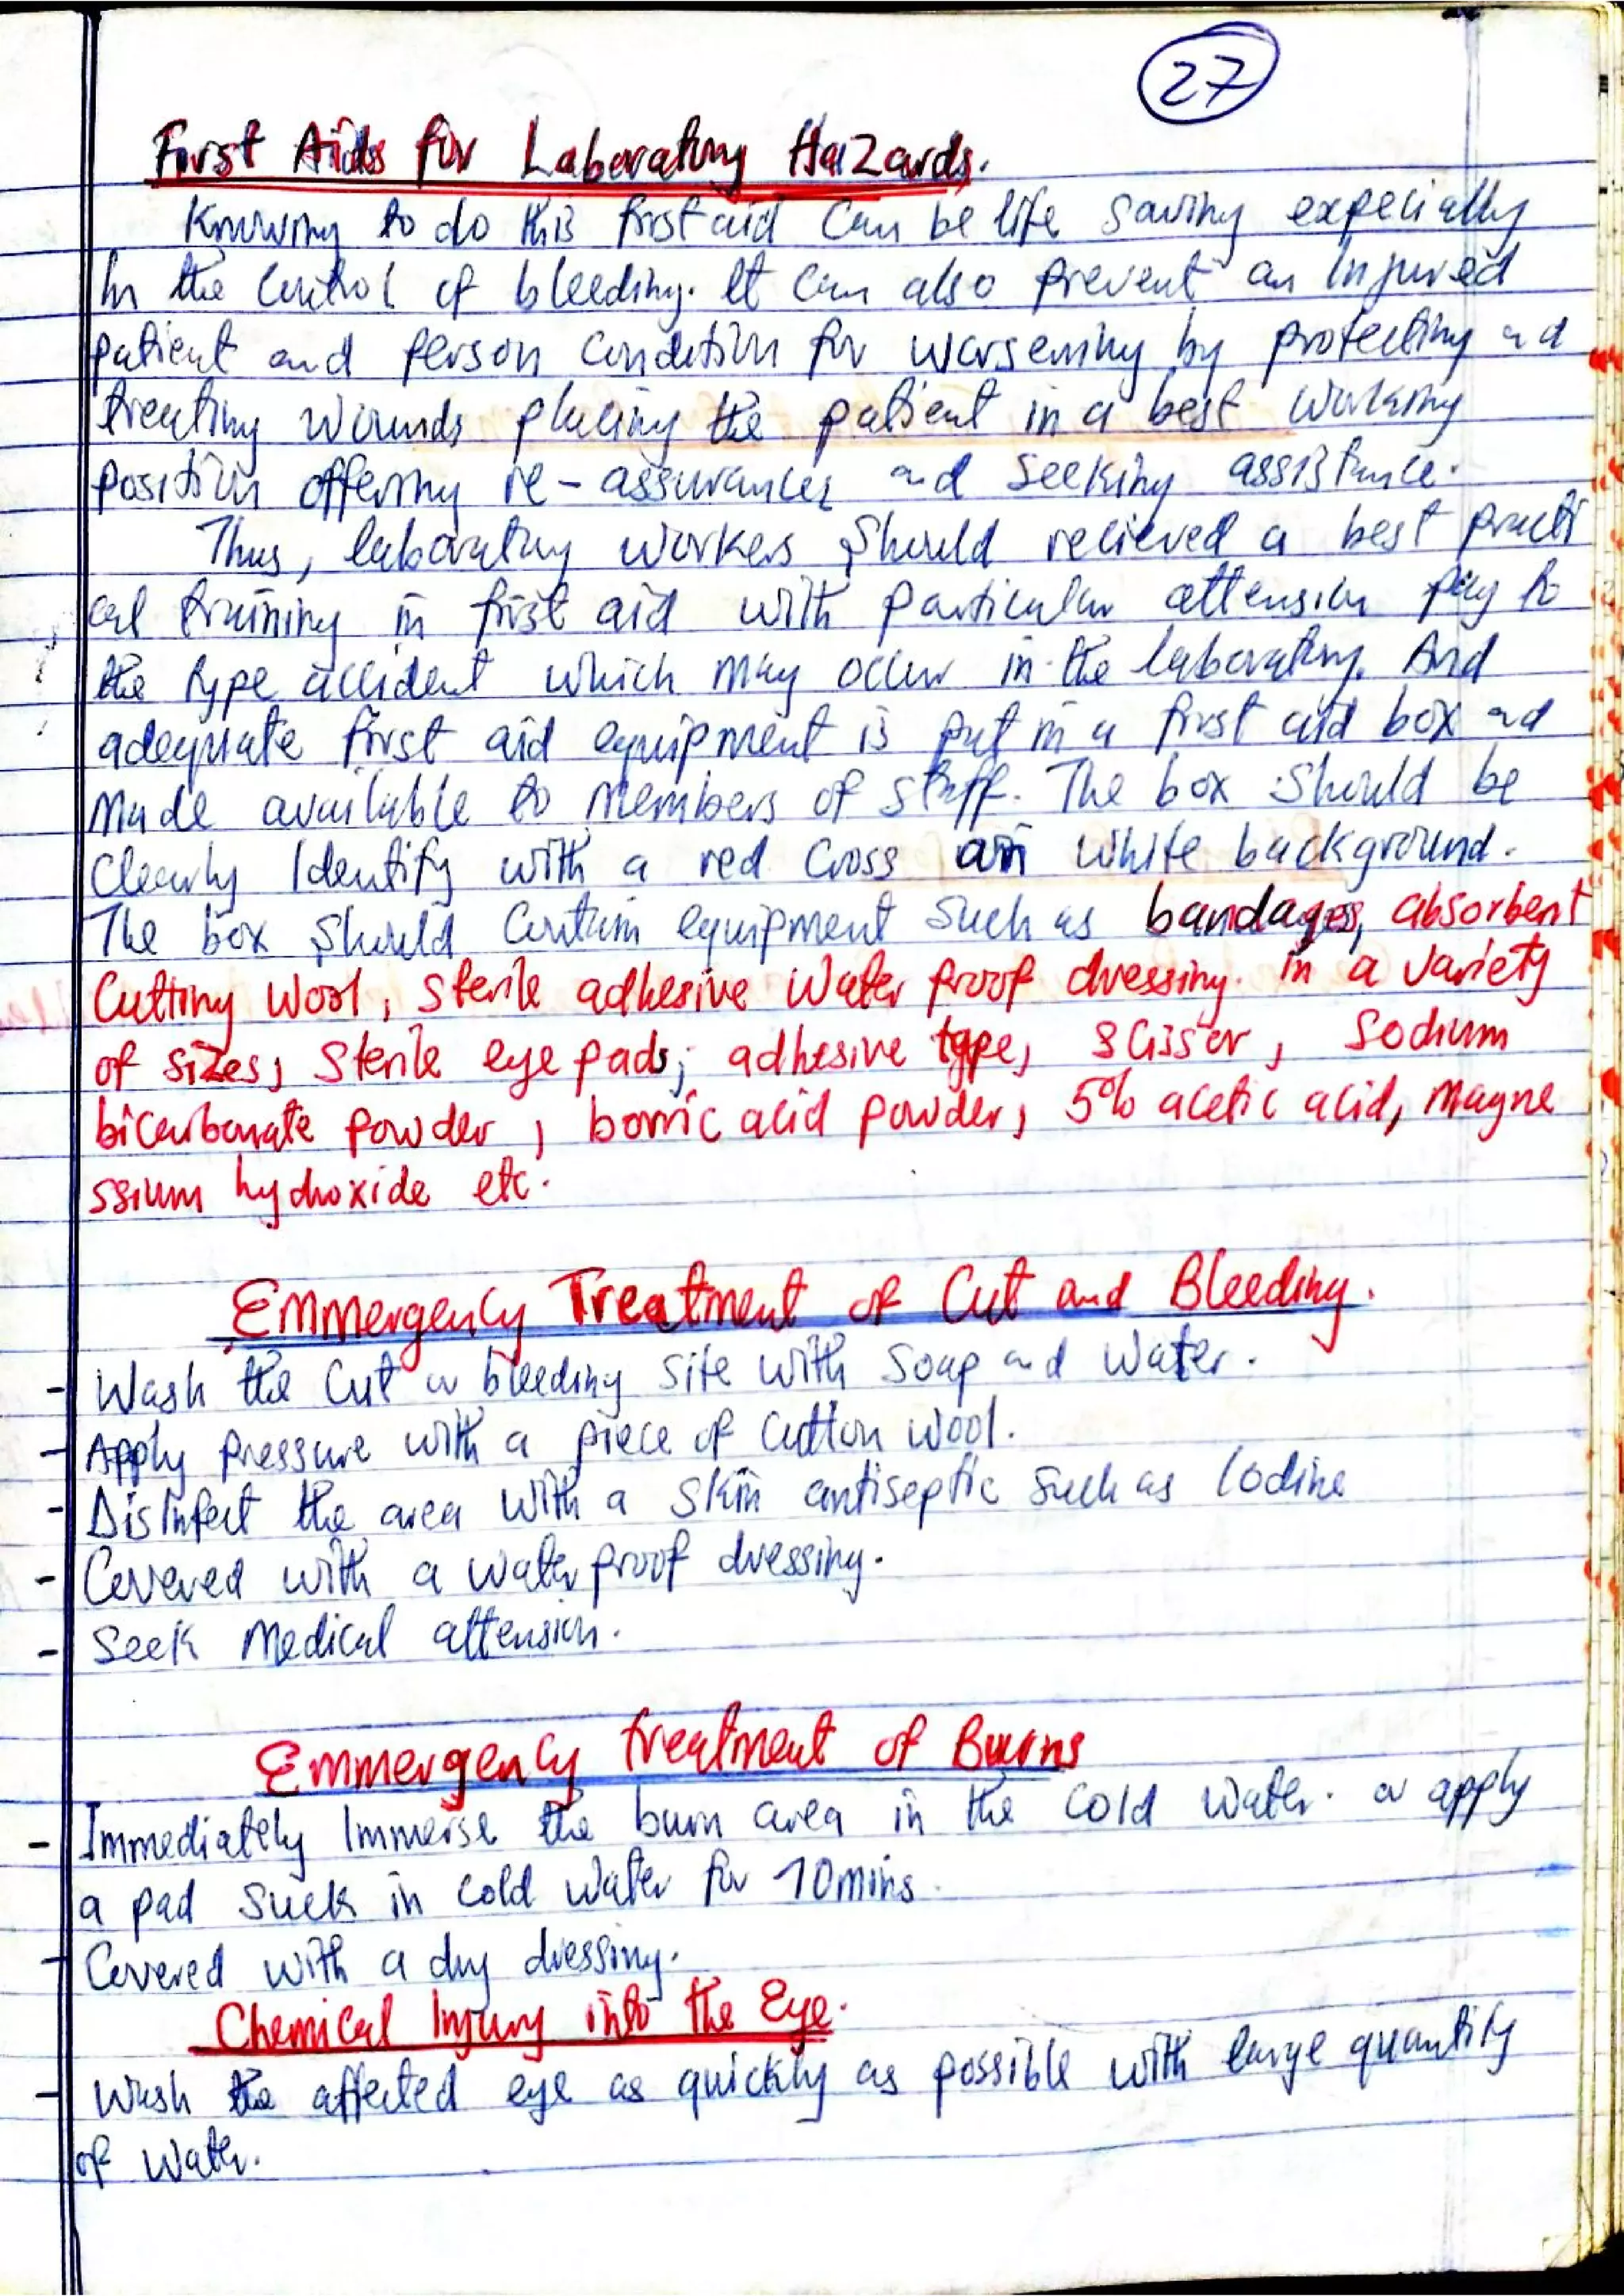 27
First Aids for Laboratory Hazards.
Knowing to do this first aid can be life saving expecially
in the control of bleeding. It can also prevent an injured
patient and person condition for worsening by protecting and
treating wounds placing the patient in a best working
position offering re-assurances and seeking assistance.
Thus, laboratory workers should relieved a best practi
cal training in first aid with particular attension pay to
the type accident which may occur in the laboratory. And
adequate first aid equipment is put in a first aid box and
made available to members of staff. The box should be
clearly identify with a red cross on white background.
The box should contain equipment such as bandages, absorbent
cutting wool, sterile adhesive water proof dressing in a variety
of sizes, sterile eye pads, adhesive type, scissor, sodium
bicarbonate powder, borric acid powder, 5% acetic acid, magne
ssium hydroxide etc.
Emmergency Treatment of Cut and Bleeding.
- Wash the cut or bleeding site with soap and water.
- Apply pressure with a piece of cutton wool.
- Disinfect the area with a skin antiseptic such as iodine
- Covered with a water proof dressing.
- Seek medical attension.
Emmergency treatment of Burns
- Immediately immerse the burn area in the cold water. or apply
a pad suck in cold water for 10mins.
- Covered with a dry dressing.
Chemical Injury into the Eye.
- Wash the affected eye as quickly as possible with large quantity
of water.